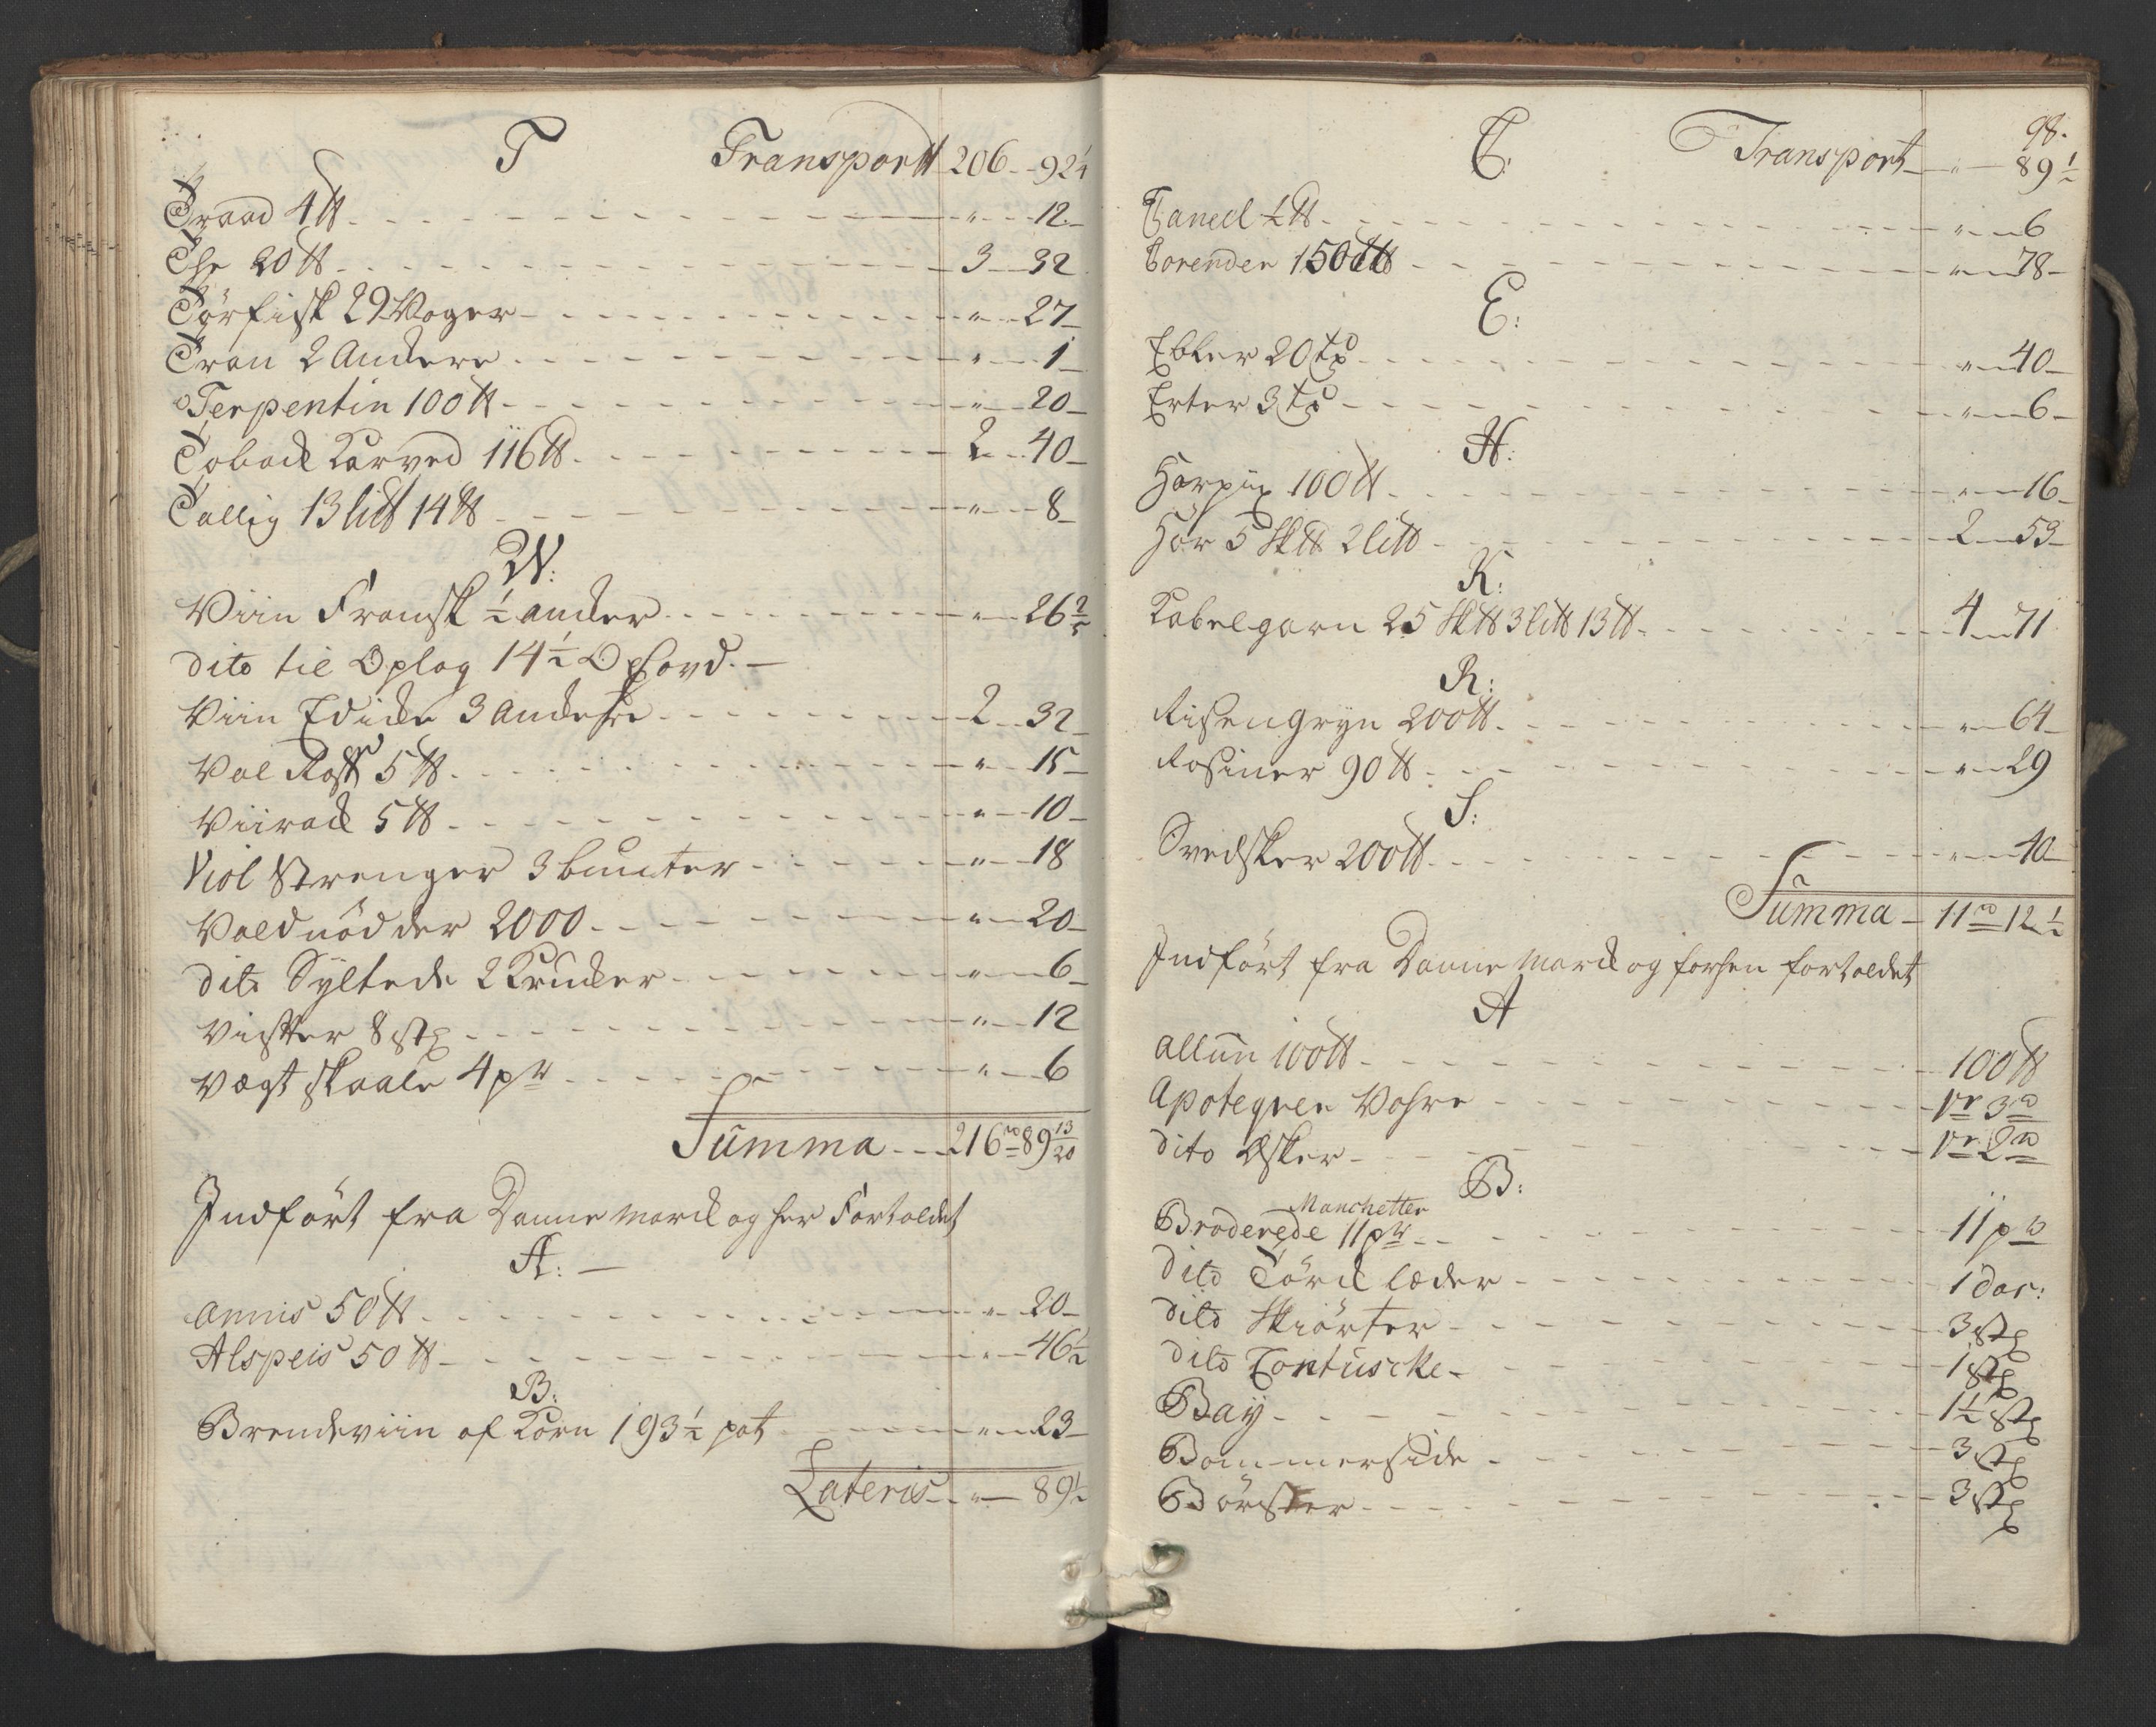 T Transportt 206 - 92 1/4
Traad 4 ℔ - " - 12 -
The 20 ℔ - 3 - 32
Törfisk 29 Woger - " - 27 -
Tran 2 Anckere - " - 1 -
Terpentin 100 ℔ - " - 20 -
Toback Karved 116 ℔ - 2 - 40 -
Tallig 13 li℔ 14 ℔ - " - 8 -
W:
Viin Fransk 1/2 ancker - " - 26 2/5
dito til Oplag 14 1/2 Oxhovd. -
Viin Edicke 3 Anckere - 2 - 32 -
Val Ratt 5 ℔ - " - 15 -
Viirack 5 ℔ - " - 10 -
Viol Strenger 3 bunter - " - 18
Valdnödder 2000 - " - 20 -
dito Syltede 2 Krucker - " - 6 -
Vifter 8 stx - " - 12
Vægt skaale 4 pr - " - 6
Summa - 216 rd 89 13/20
Indfört fra Dannemarck og her Fortoldet
A: -
Annis 50 ℔ - " - 20 -
Alspeis 50 ℔ - " - 46 1/2
B:
Brendeviin af Korn 193 1/2 pot - " - 23 -
Lateris - " - 89 1/2
98.
C: Transport - " - 89 1/2
Caneel 1/2 ℔ - " - 6
Corender 150 ℔ - " - 78 -
E:
Ebler 20 tx - " - 40 -
Erter 3 tx - " - 6 -
H:
Harpix 100 ℔ - " - 16 -
Hör 5 Sk℔ 2 li℔ - 2 - 53 -
K:
Kabelgarn 25 Sk℔ 3 li℔ 13 ℔ - 4 - 71
R:
Risengryn 200 ℔ - " - 64 -
Rosiner 90 ℔ - " - 29
S:
Svedsker 200 ℔ - " - 40 -
Summa - 11 rd 12 1/2
Indfört fra Dannemarck og forhen fortoldet
A
Allun 100 ℔ - 100 ℔
Apoteqver Vahre - vr 3 rd
dito Æsker - vr 2 rd
B:
Manchetter
Broderede 11 pr - 11 pr
dito Törck læder - 1 dos:
dito Skiörter - 3 stx
dito Contuscke - 1 stx
Bay - 1 1/2 stx
Bommerside - 3 stx
Börster - 3 stx